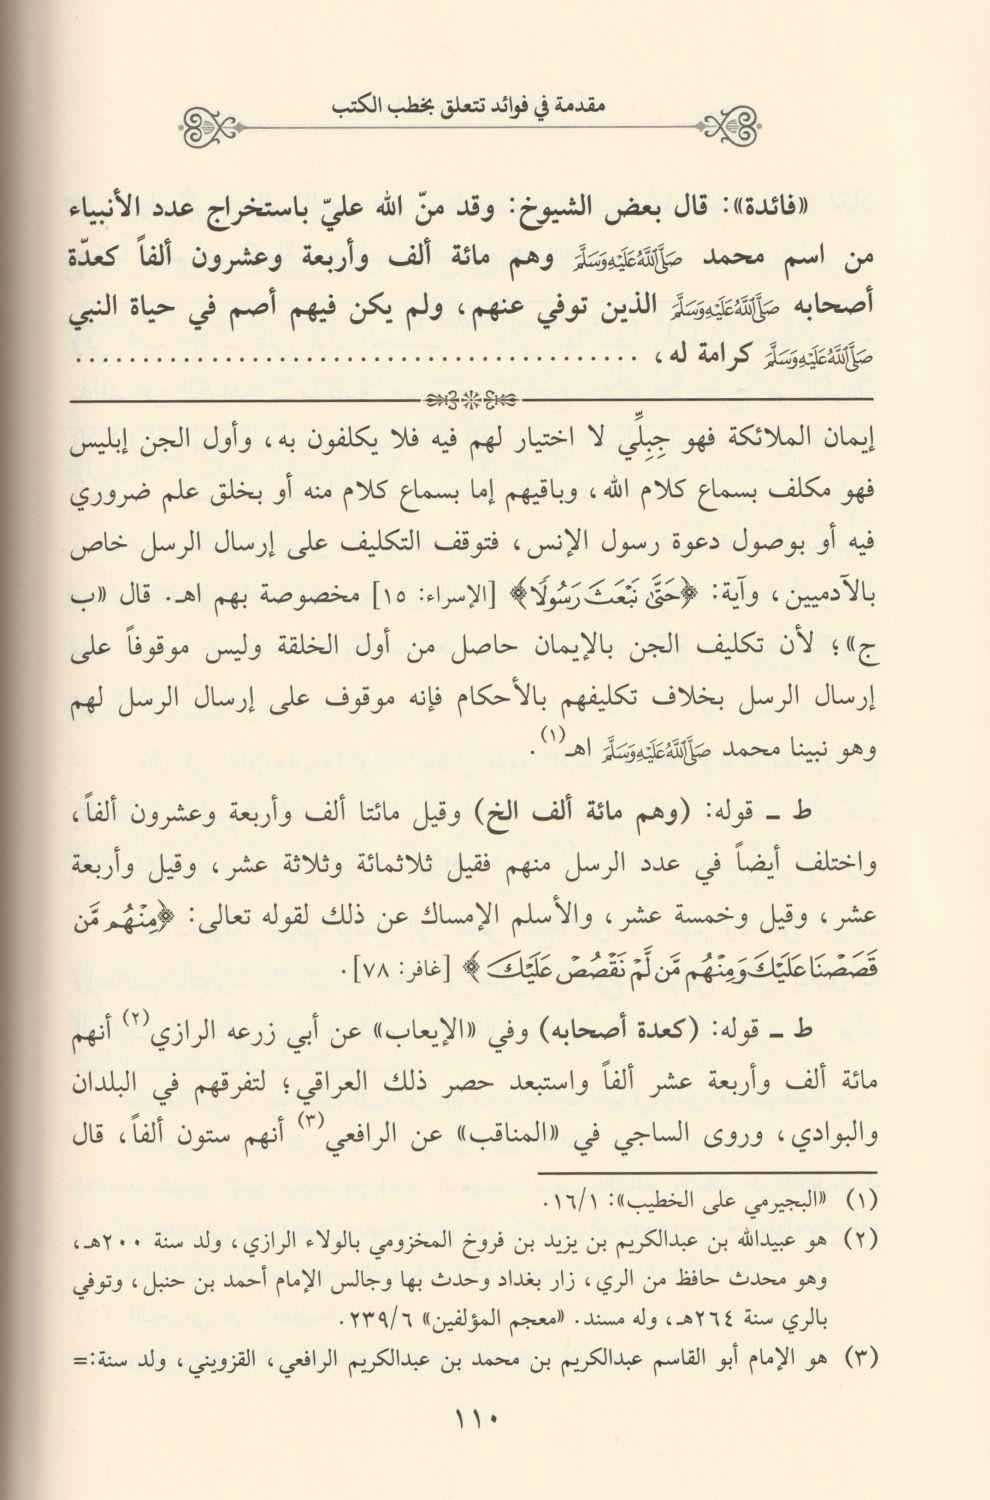 مقدمة في فوائد تتعلق بخطب الكتب
«فائدة»: قال بعض الشيوخ: وقد منّ الله عليّ باستخراج عدد الأنبياء
من اسم محمد صَلَّىٰللَّهُعَلَيْهِوَسَلَّمَ وهم مائة ألف وأربعة وعشرون ألفاً كعدّة
أصحابه صَلَّىٰللَّهُعَلَيْهِوَسَلَّمَ الذين توفي عنهم، ولم يكن فيهم أصم في حياة النبي
صَلَّىٰللَّهُعَلَيْهِوَسَلَّمَ كرامة له، ........................................
إيمان الملائكة فهو جِبِلِّي لا اختيار لهم فيه فلا يكلفون به، وأول الجن إبليس
فهو مكلف بسماع كلام الله، وباقيهم إما بسماع كلام منه أو بخلق علم ضروري
فيه أو بوصول دعوة رسول الإنس، فتوقف التكليف على إرسال الرسل خاص
بالآدميين، وآية: ﴿حَتَّىٰ نَبْعَثَ رَسُولًا﴾ [الإسراء: ١٥] مخصوصة بهم اهـ. قال «ب
ج»؛ لأن تكليف الجن بالإيمان حاصل من أول الخلقة وليس موقوفاً على
إرسال الرسل بخلاف تكليفهم بالأحكام فإنه موقوف على إرسال الرسل لهم
وهو نبينا محمد صَلَّىٰللَّهُعَلَيْهِوَسَلَّمَ اهـ(١).
ط ـ قوله: (وهم مائة ألف الخ) وقيل مائتا ألف وأربعة وعشرون ألفاً،
واختلف أيضاً في عدد الرسل منهم فقيل ثلاثمائة وثلاثة عشر، وقيل وأربعة
عشر، وقيل وخمسة عشر، والأسلم الإمساك عن ذلك لقوله تعالى: ﴿مِنْهُم مَّن
قَصَصْنَا عَلَيْكَ وَمِنْهُم مَّن لَّمْ نَقْصُصْ عَلَيْكَ﴾ [غافر: ٧٨].
ط ـ قوله: (كعدة أصحابه) وفي «الإيعاب» عن أبي زرعه الرازي(٢) أنهم
مائة ألف وأربعة عشر ألفاً واستبعد حصر ذلك العراقي؛ لتفرقهم في البلدان
والبوادي، وروى الساجي في «المناقب» عن الرافعي(٣) أنهم ستون ألفاً، قال
(١) «البجيرمي على الخطيب»: ١٦/١.
(٢) هو عبيدالله بن عبدالكريم بن يزيد بن فروخ المخزومي بالولاء الرازي، ولد سنة ٢٠٠هـ،
وهو محدث حافظ من الري، زار بغداد وحدث بها وجالس الإمام أحمد بن حنبل، وتوفي
بالري سنة ٢٦٤هـ، وله مسند. «معجم المؤلفين» ٢٣٩/٦.
(٣) هو الإمام أبو القاسم عبدالكريم بن محمد بن عبدالكريم الرافعي، القزويني، ولد سنة:=
١١٠